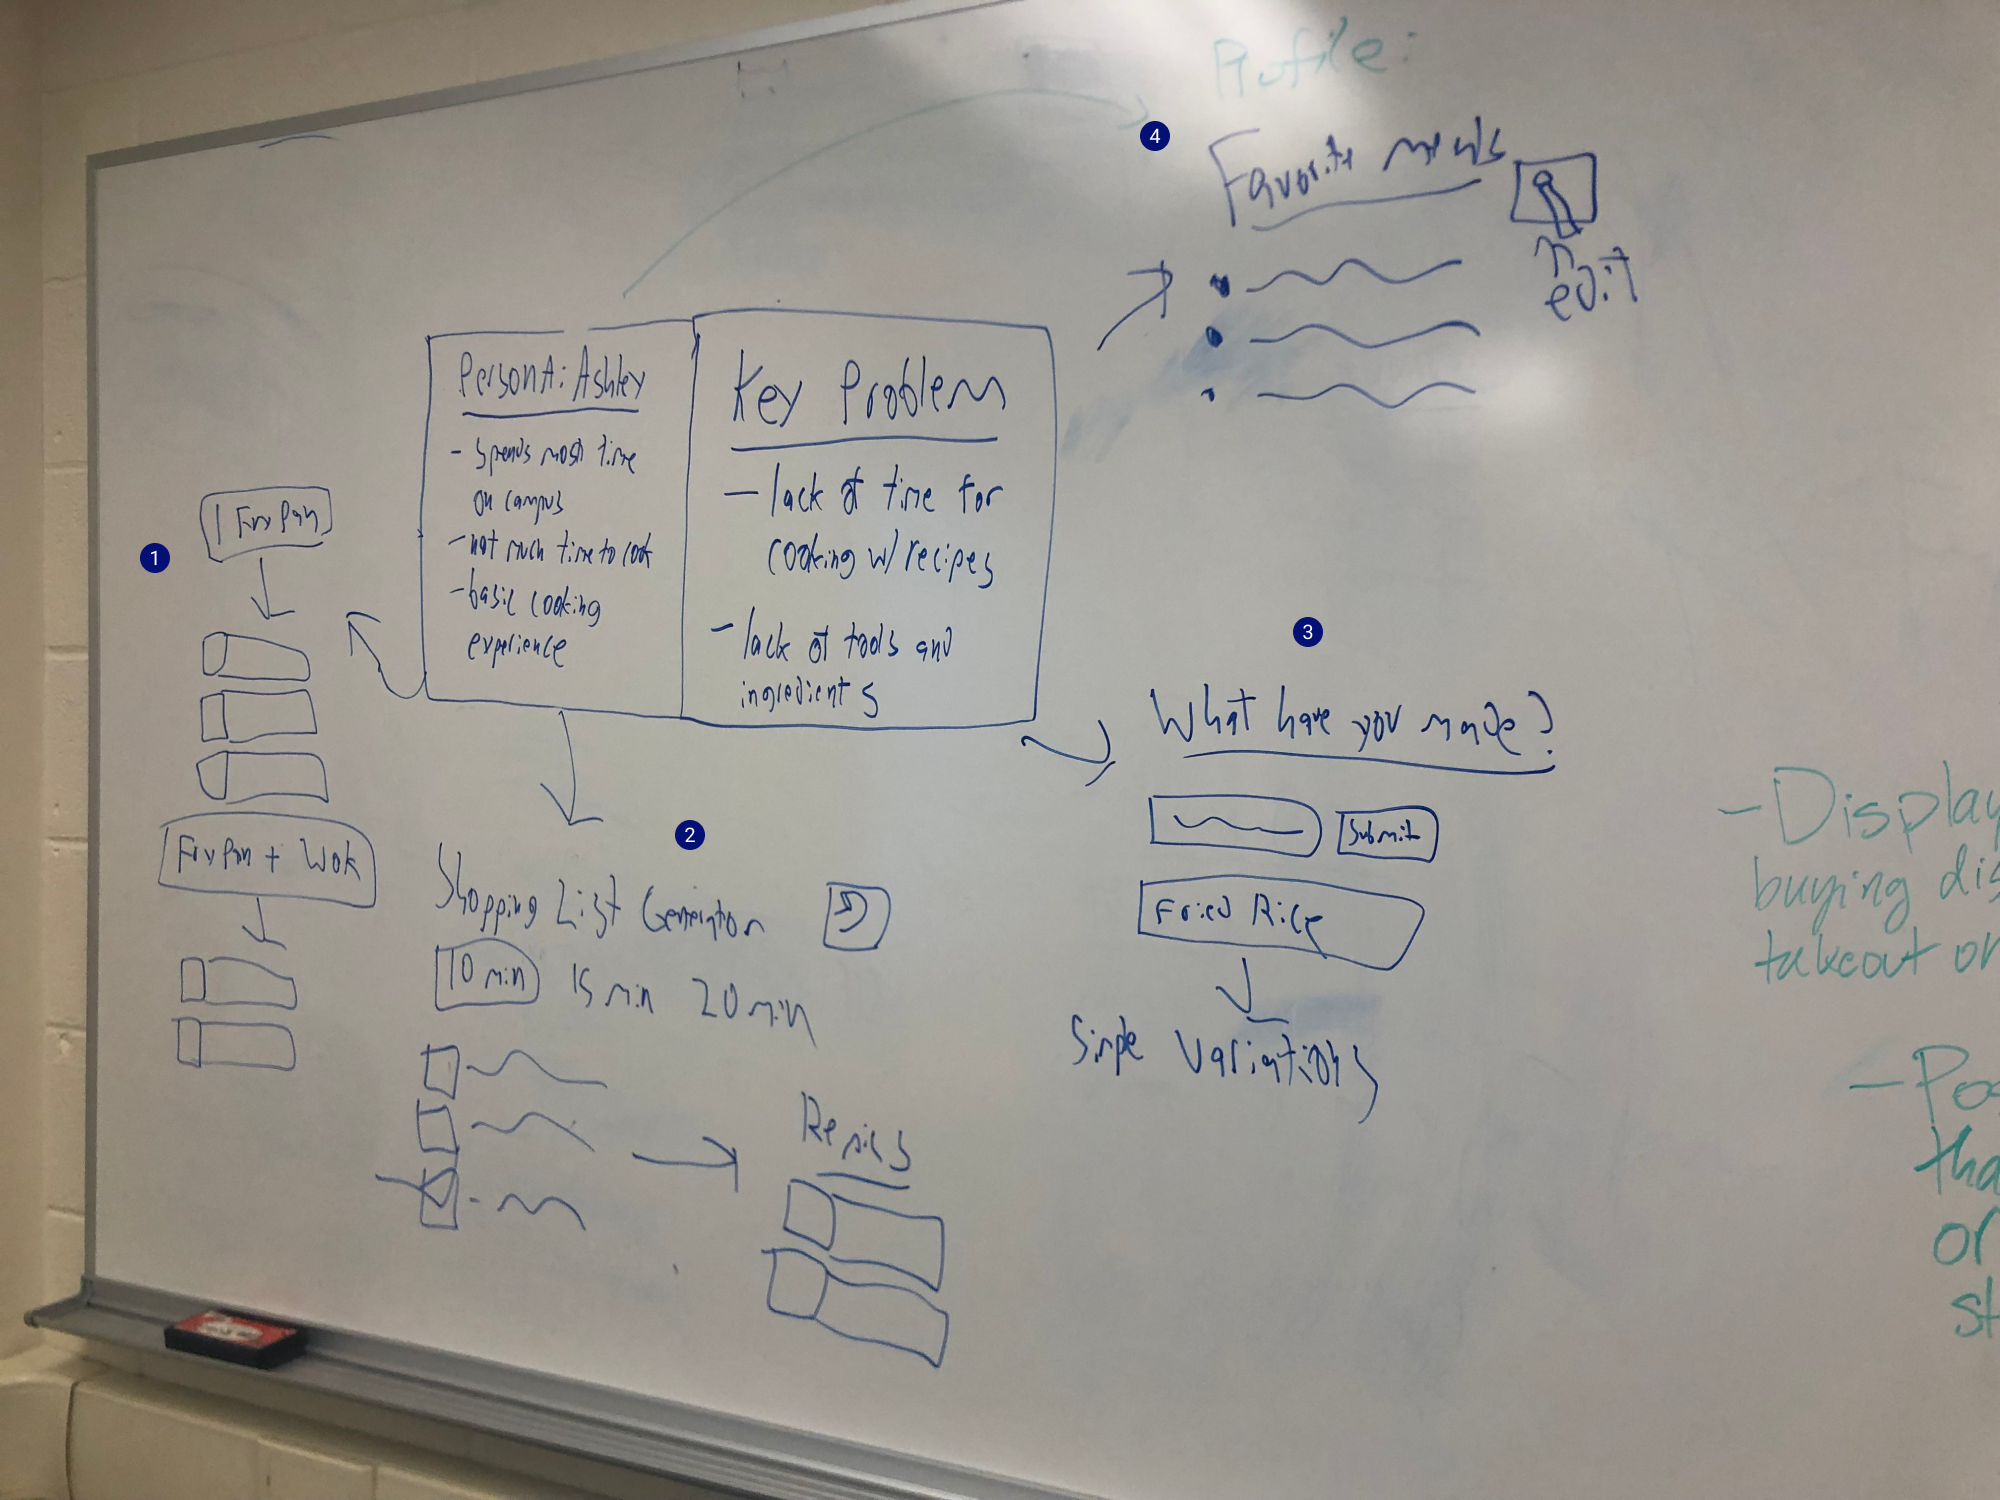 Profile:
4
Favorite meals
edit
Persona: Ashley
- spends most time
on campus
- not much time to cook
- basic cooking
experience
Key Problem
- lack of time for
cooking w/ recipes
- lack of tools and
ingredients
1
1 Fry Pan
Fry Pan + Wok
2
Shopping List Generator
10 min 15 min 20 min
3
What have you made?
Submit
Fried Rice
Simple Variations
- Display
buying dis
takeout or
- Pos
tha
or
st